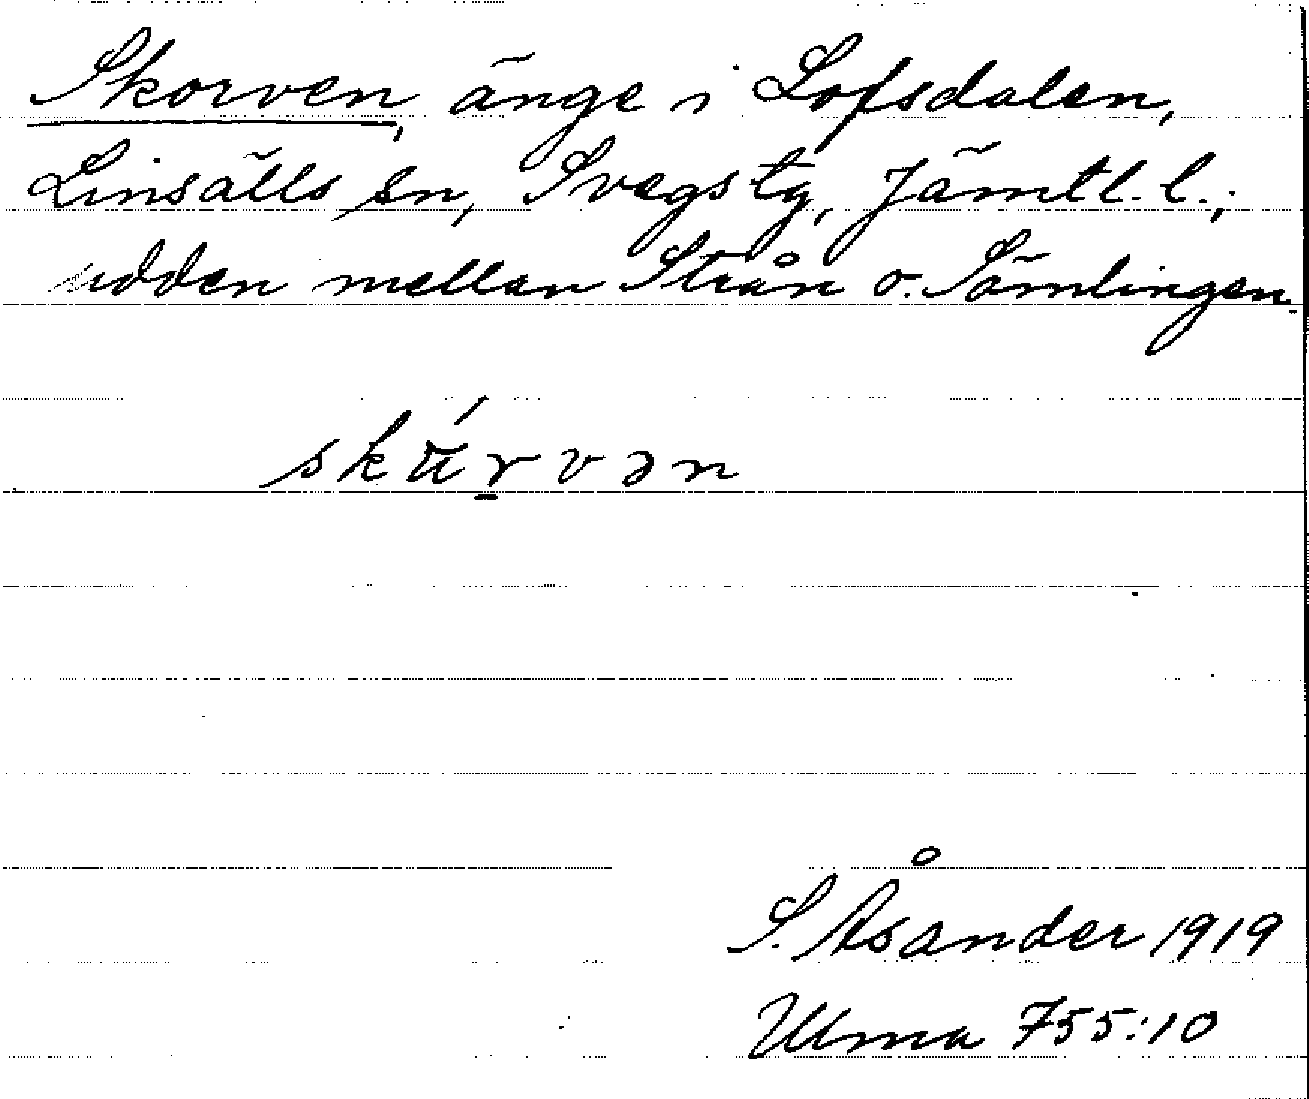 Skorven, änge i Lofsdalen,
Linsälls sn, Svegs tg, Jämtl. l.;
udden mellan Strån o. Sömlingen.
skúrvən
S. Åsander 1919
Ulma 755:10